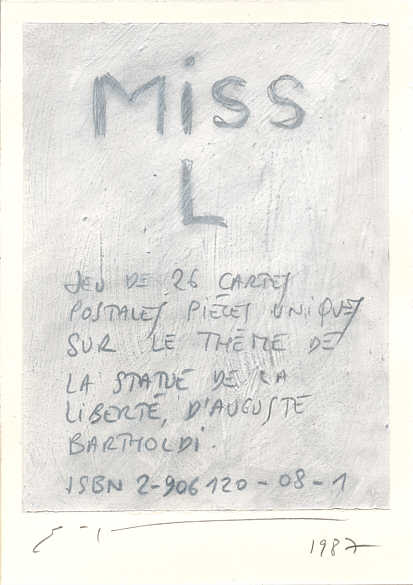 Miss
L
JEU DE 26 CARTES
POSTALES PIÈCES UNIQUES
SUR LE THÈME DE
LA STATUE DE LA
LIBERTÉ, D'AUGUSTE
BARTHOLDI.
ISBN 2-906120-08-1
1987